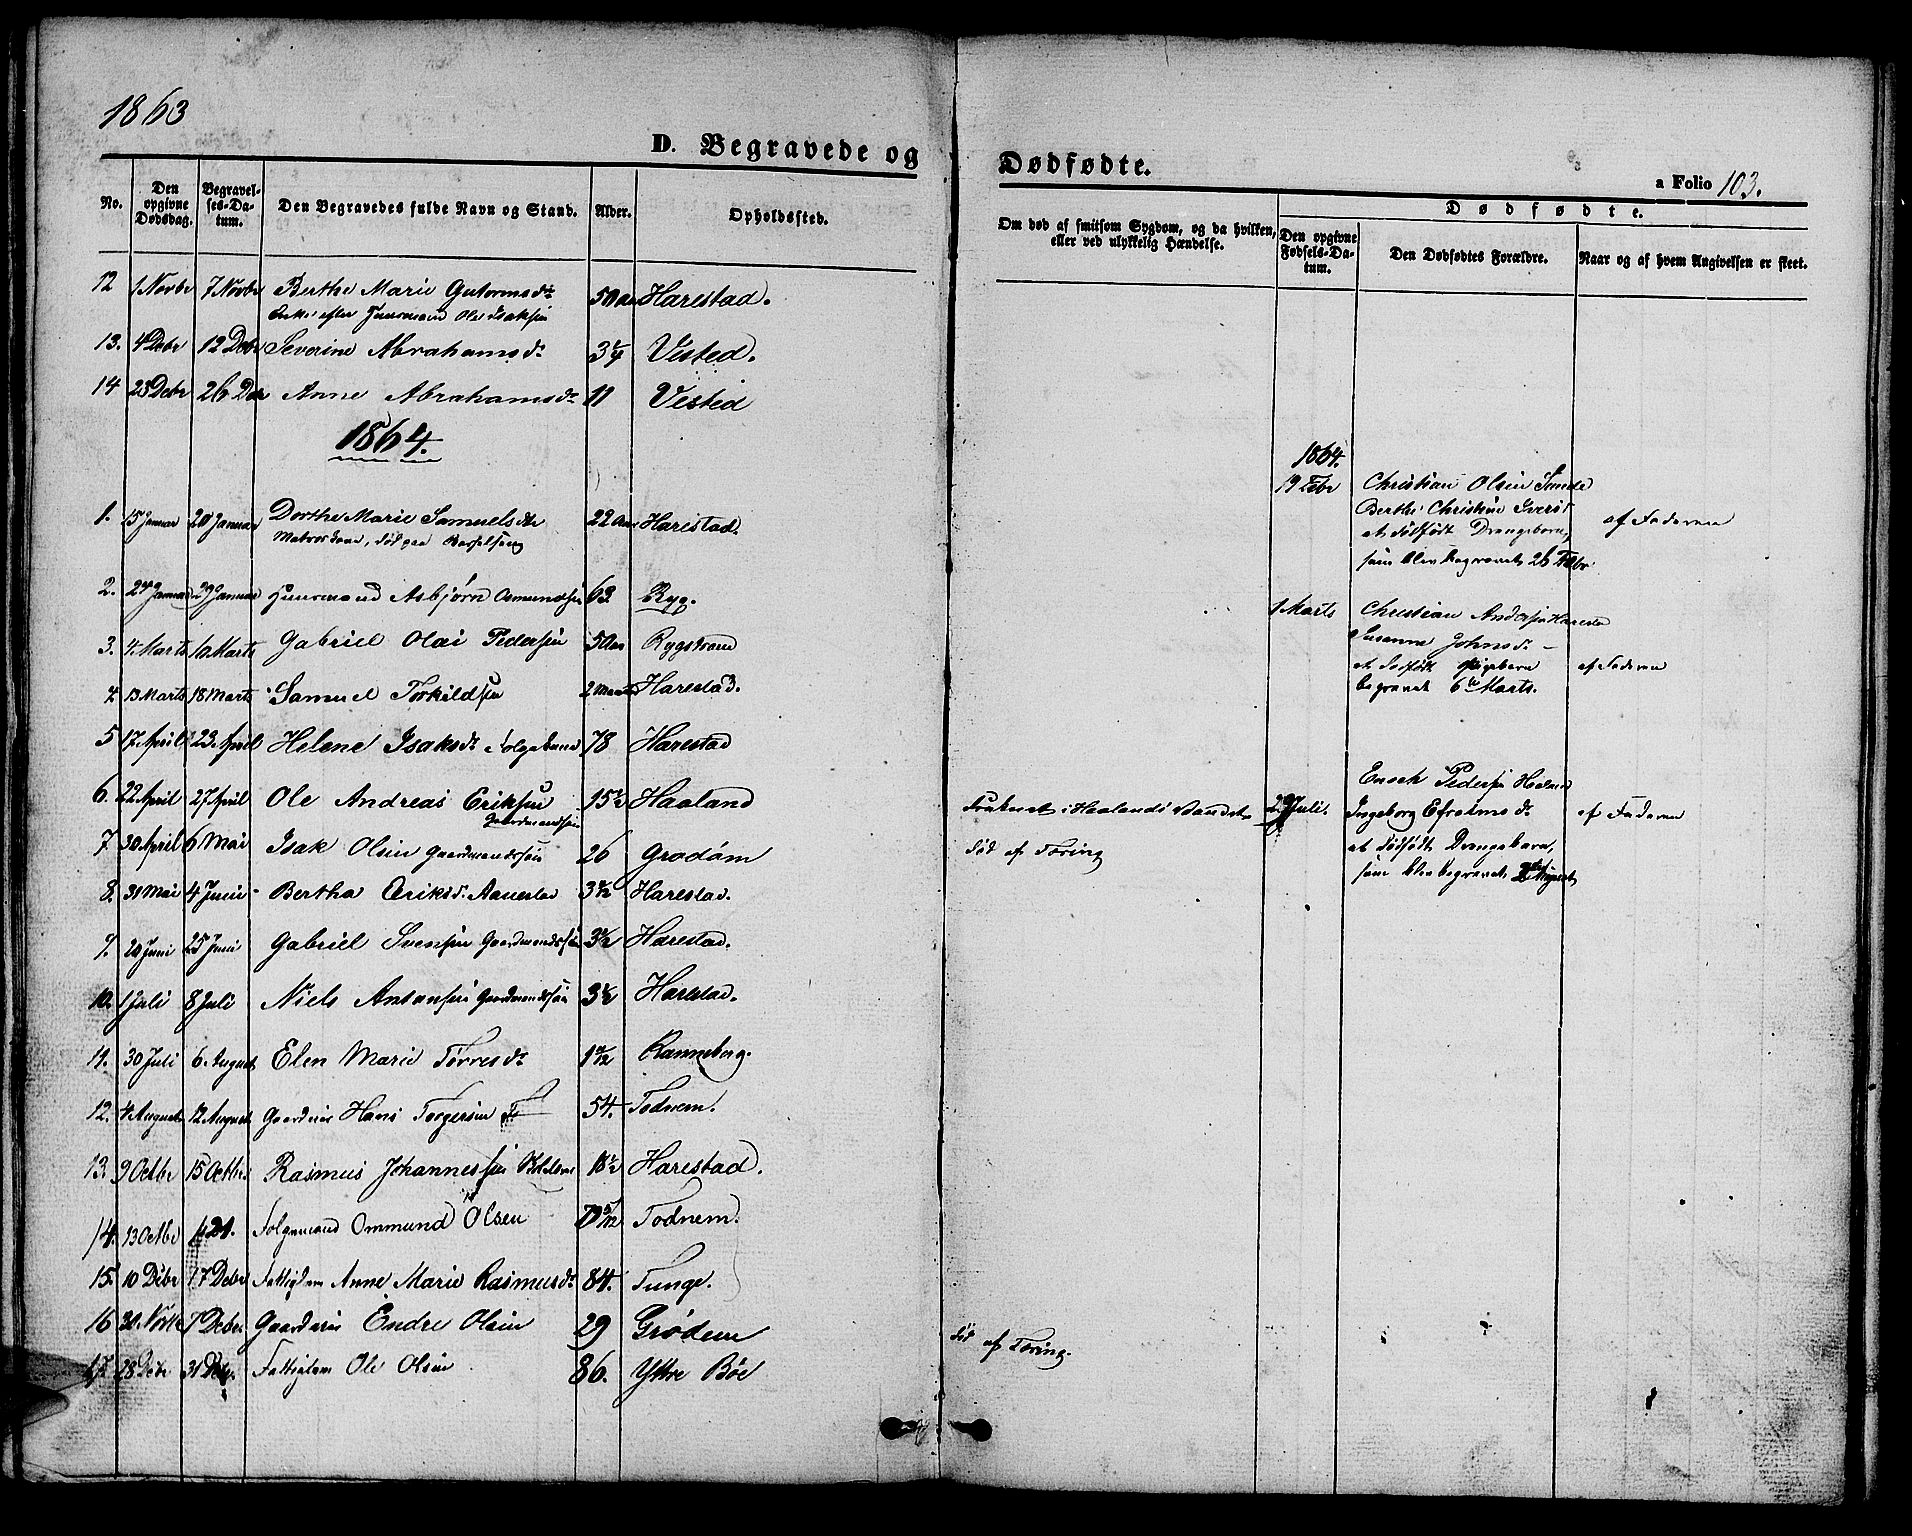 1863
D. Begravede og
No. Den opgivne Dødsdag. Begravelses-Datum. Den Begravedes fulde Navn og Stand. Alder. Opholdssted.
12 1 Novbr 7 Novbr Berthe Marie Gutormsdt 50 Aar Harestad.
Enke efter Huusmand Ole Isaksen
13. 4 Debr 12 Debr Severine Abrahamsdr 3 Visted.
14 23 Debr 26 Debr Anne Abrahamsdr 11 Visted
1864.
1. 15 Januar 20 Januar Dorthe Marie Samuelsdtr 22 Aar Harestad.
Matroskone, død paa Barselseng
2. 24 Januar 29 Januar Huusmand Asbjørn Osmundsen 63 Ryg.
3. 4 Marts 10 Marts Gabriel Olai Pedersen 50 Aar Rygstrand
4. 13 Marts 18 Marts Samuel Torkildsen 2 Maan Harestad.
5 17 April 23 April Helene Isaksdr Folgekone 78 Harestad
6. 22 April 27 April Ole Andreas Eriksen 15½ Haaland
Gaardmandssøn
7. 30 April 6 Mai Isak Olsen Gaardmandssøn 26 Grødem
8. 31 Mai 4 Juni Bertha Eriksdr Harestad.
9. 20 Juni 25 Juni Gabriel Svensen Gaardmandssøn 3½ Harestad.
10. 1 Juli 8 Juli Niels Antonsen Gaardmandssøn 3½ Harestad.
11. 30 Juli 6 August Elen Marie Tørresdr Ranneberg.
12. 4 August 12 August Gaardeier Hans Torgersen 54. Todnem.
13. 9 Octbr 15 Octbr Rasmus Johannessen 18½ Harestad.
14. 13 Octbr 21. Folgemand Ommund Olsen 79 5/12 Todnem.
15. 10 Debr 17 Debr Fattiglem Anne Marie Rasmusdr 84. Tunge.
16 30 Novbr 7 Debr Gaardeier Endre Olsen 29 Grødem
17. 28 Debr 31 Debr. Fattiglem Ole Olsen 86. Yttre Bøe
Dødfødte.
a Folio 103.
Dødfødte.
Om død af smitsom Sygdom, og da hvilken, eller ved ulykkelig Hændelse. Den opgivne Fødsels-Datum. Den Dødfødtes Forældre. Naar og af hvem Angivelsen er skeet.
1864.
19 Febr Christian Olsen Sande
Berthe Christine Iversd
et dødfødt Drengebarn, af Faderen
som blev begravet 26 Febr
1 Marts Christian Andersen Harestad
Susanne Johnsdr
et dødfødt Pigebarn af Faderen
begravet 6te Marts.
Enoch Pedersen
Druknet i Haalands Vandet 29 Juli. Ingeborg Efraimsdr af Faderen
Død af Tæring et dødfødt Drengebarn,
som blev begravet August
Død af Tæring.